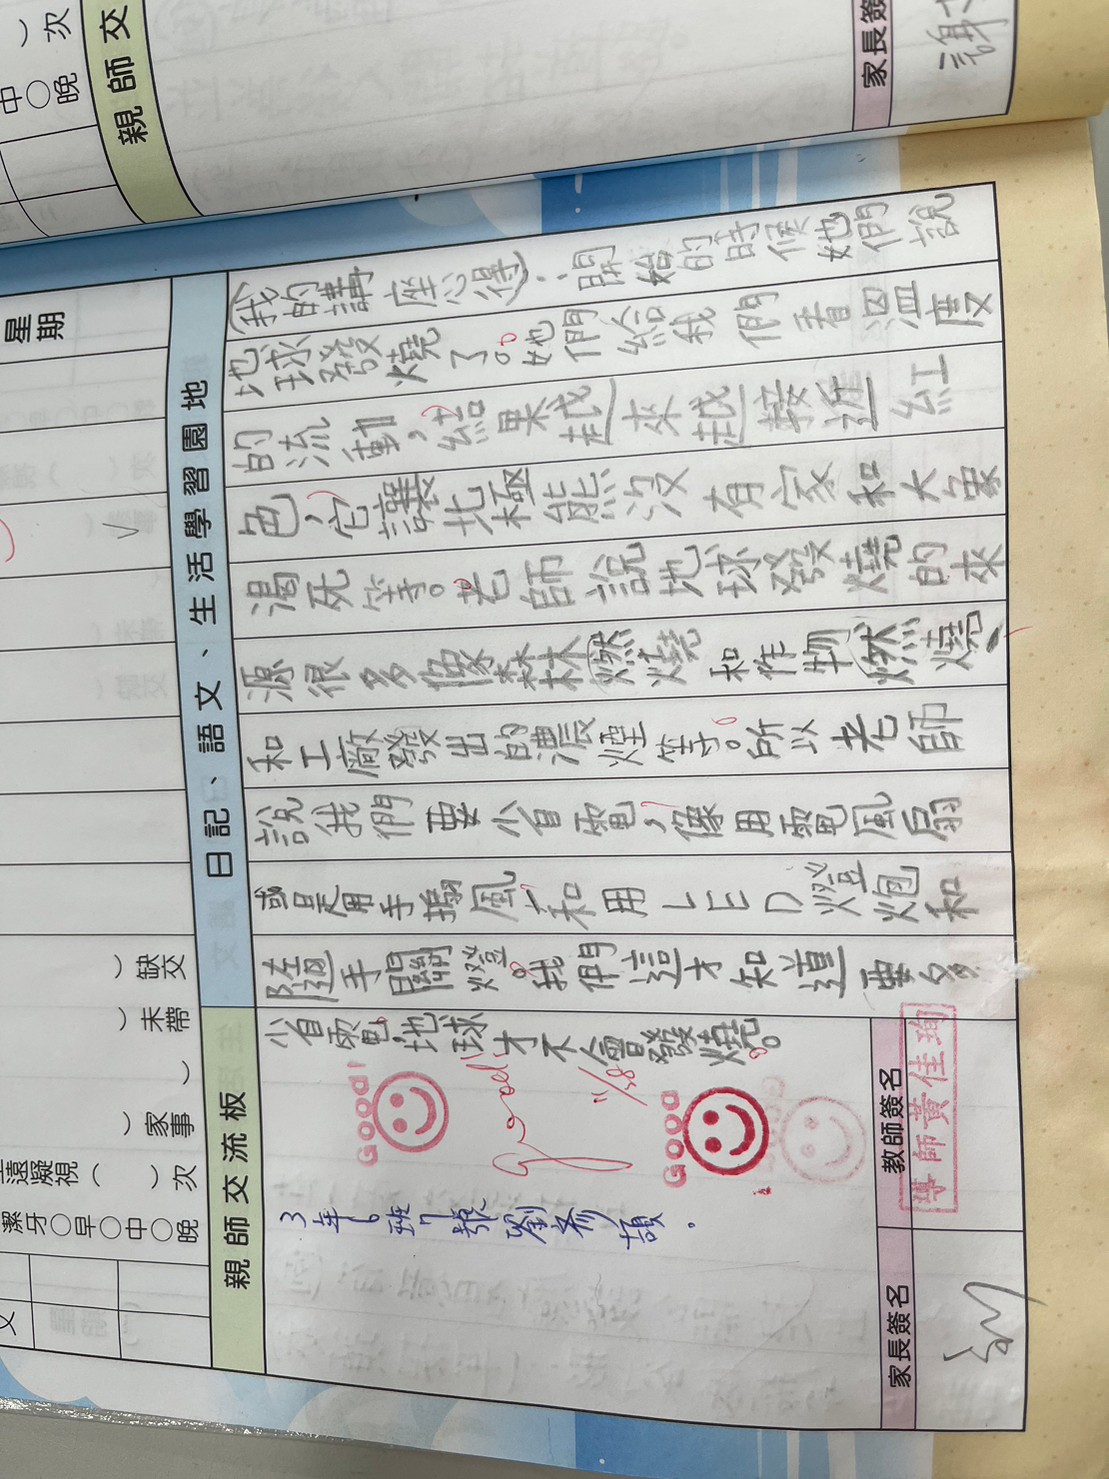 中〇晚
）次
親師交
家長簽
謝
星期
日記、語文、生活學習園地
(我的講座心得)：開始的時候她們說
地球發燒了。她們給我們看沼溫度
的流動，結果越來越接近紅
色，它讓北極熊沒有家和大象
渴死等。老師說地球發燒的來
源很多像森林燃燒和作物燃燒、
和工廠發出的濃煙等。所以老師
說我們要少省電，像用電風扇
或是用手搧風，和用LED燈炮和
隨手關燈。我們這才知道要多
少省電，地球才不會發燒。
）缺交
）未帶
）家事
遠凝視（ ）次
潔牙〇早〇中〇晚
親師交流板
GOOD!
Good!
11/18
GOOD!
3年6班7號劉
教師簽名
導師黃佳珣
家長簽名